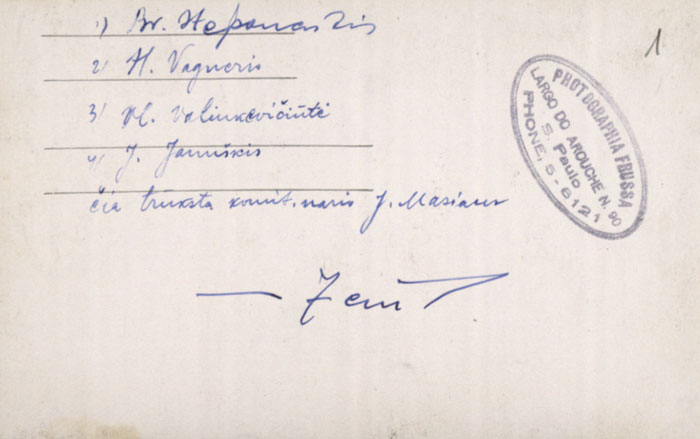 1) Br. Steponaitis
2) H. Vagneris
3) Vl. Valinkevičiūtė
4) J. Januškis
čia trūksta komit. naris J.
1
PHOTOGRAPHIA FRUSSA
LARGO DO AROUCHE N. 90
S. Paulo
PHONE, 5-6121